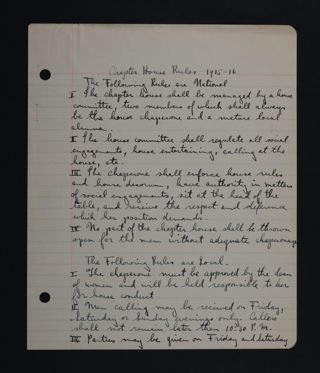 Chapter House Rules 1915-16
The Following Rules are National.
I The chapter house shall be managed by a house
committee, two members of which shall always
be the house chaperone and a mature local
alumna.
II The house committee shall regulate all social
engagements, house entertaining, calling at the
house, etc.
III The chaperone shall enforce house rules
and house decorum, have authority in matters
of social engagements, sit at the head of the
table, and receive the respect and deference
which her position demands.
IV No part of the chapter house shall be thrown
open for the men without adequate chaperonage
The Following Rules are Local.
I The chaperone must be approved by the dean
of women and will be held responsible to her
for house conduct.
II Men calling may be received on Friday,
Saturday or Sunday evenings only. Callers
shall not remain later than 10:30 P.M.
III Parties may be given on Friday and Saturday